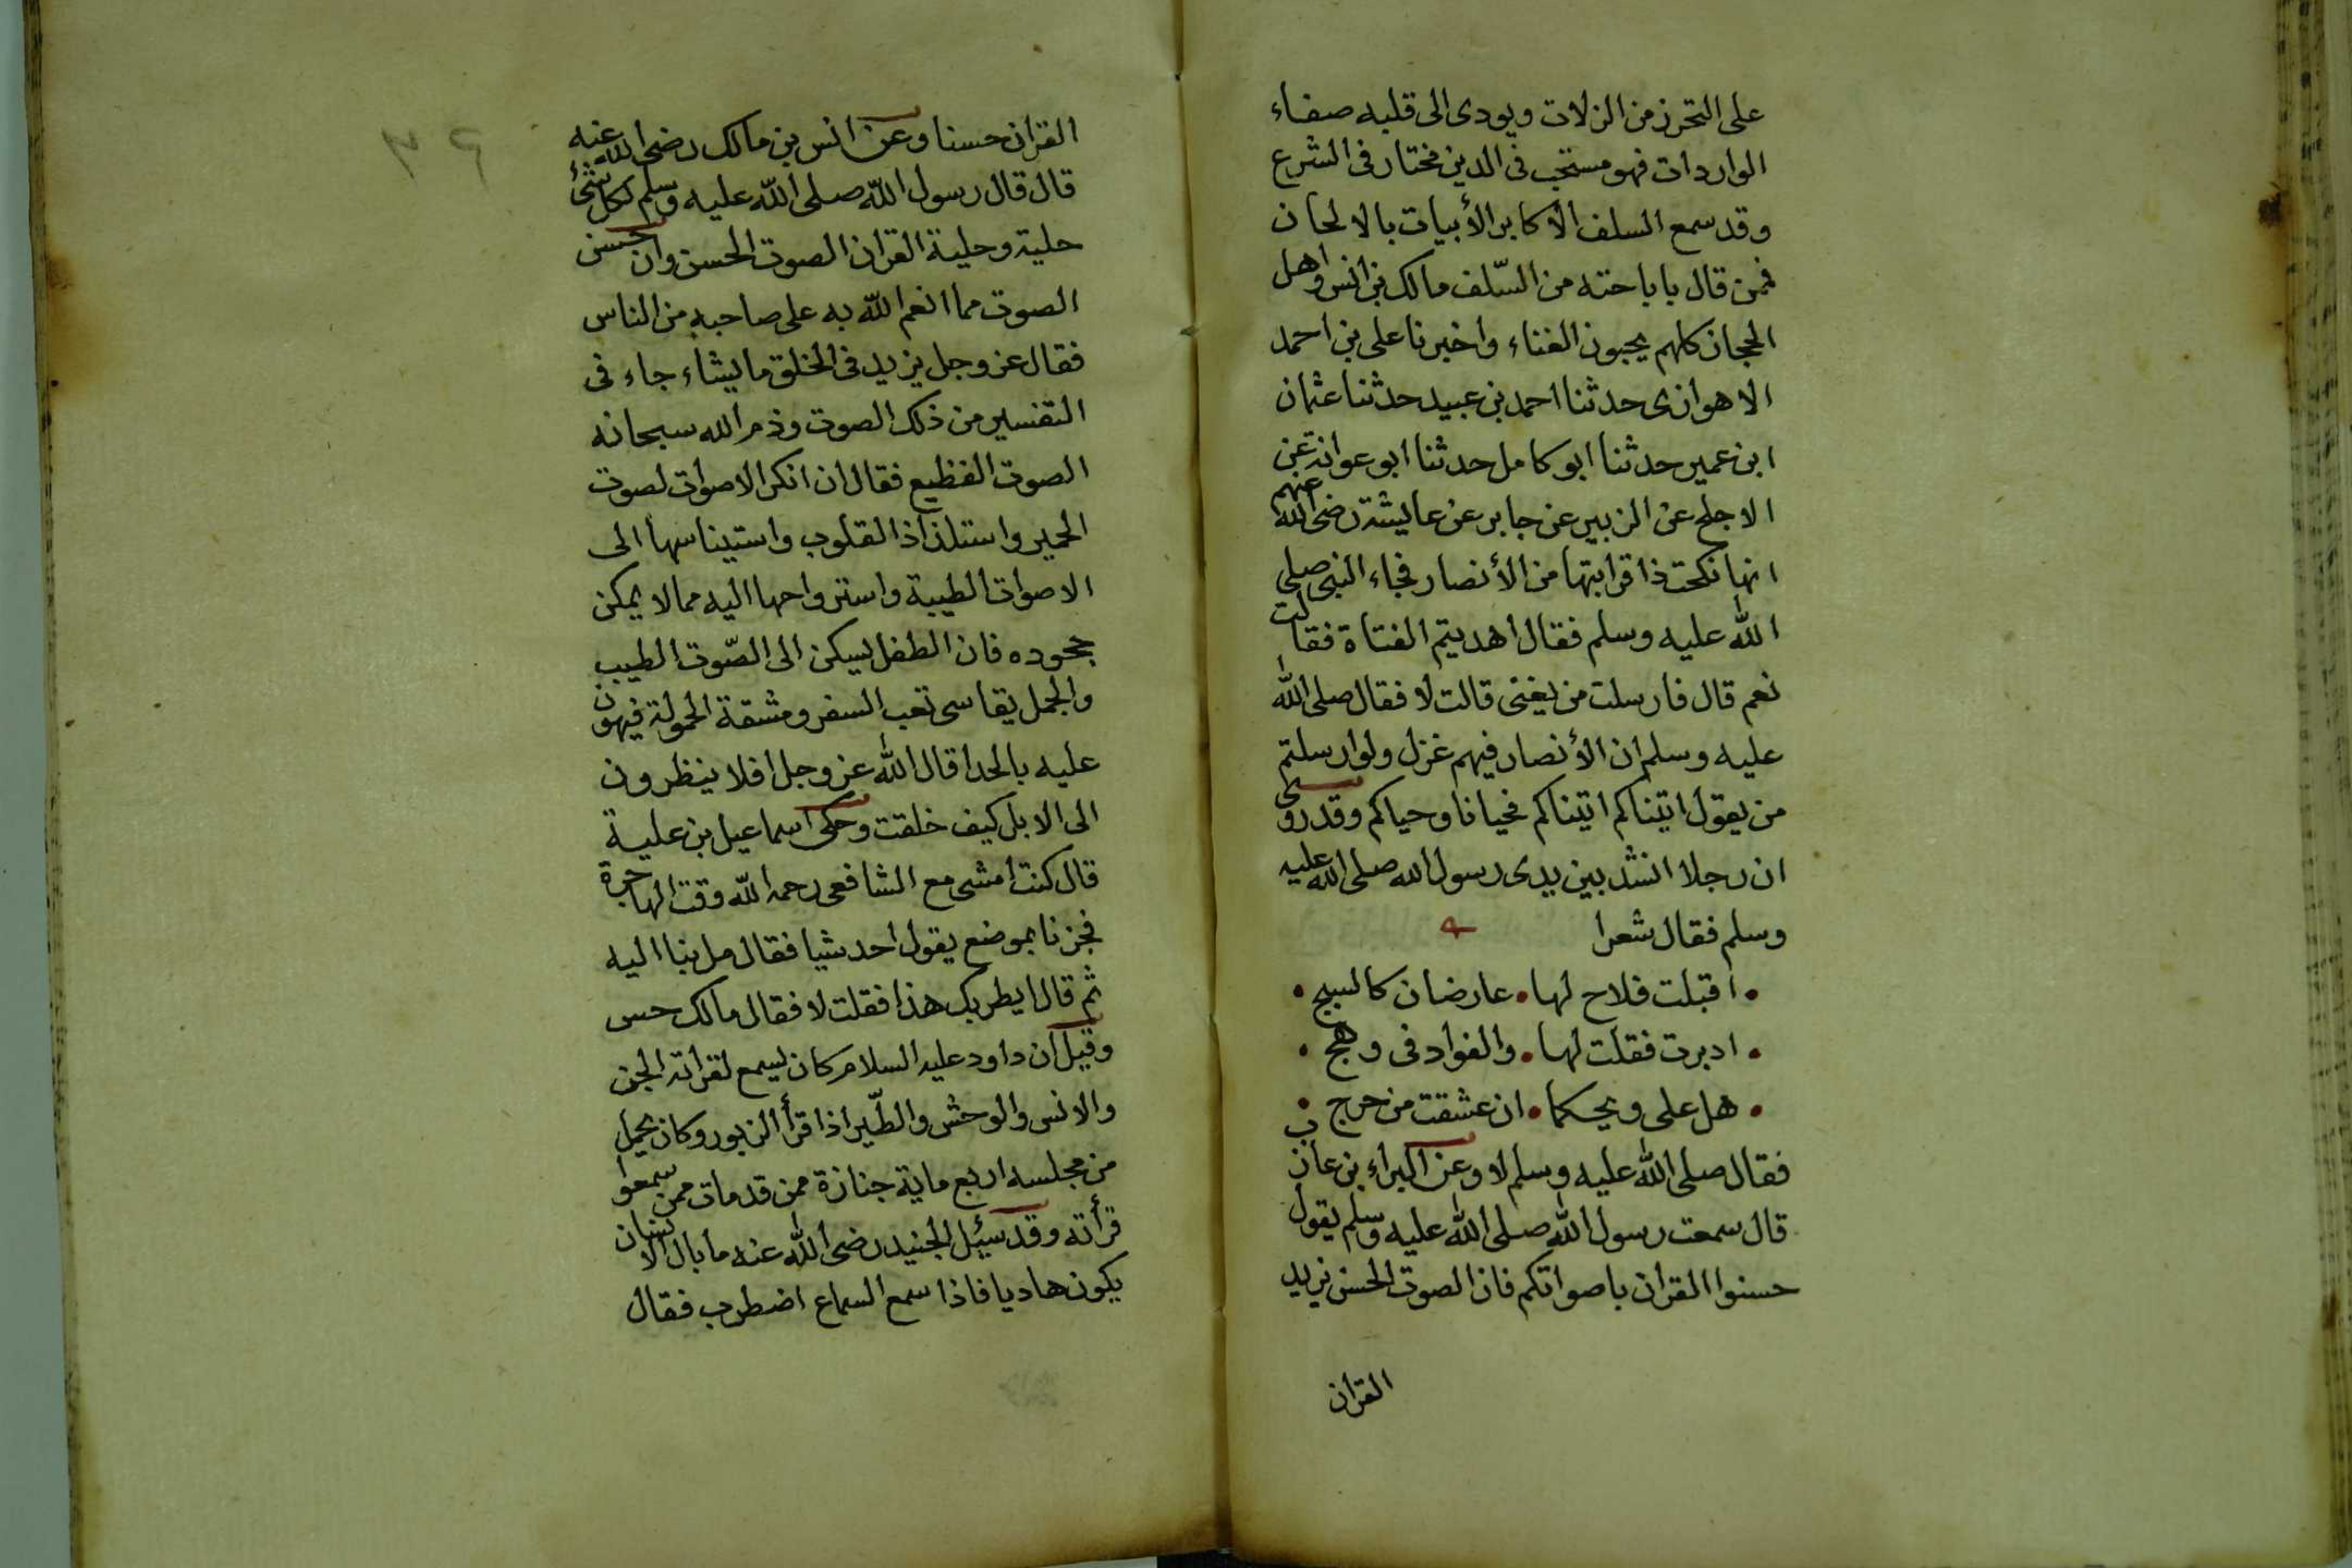 على التحرز من الزلات ويودى الى قلبه صفاء
الواردات فهو مستحب فى الدين مختار فى الشرع
وقد سمع السلف الأكابر الأبيات بالالحان
فمن قال باباحته من السّلف مالك بن انس واهل
الحجاز كلهم يحبون الغناء واخبرنا على بن احمد
الاهوازى حدثنا احمد بن عبيد حدثنا عثمان
ابن عمير حدثنا ابو كامل حدثنا ابو عوانة عن
الاجلح عن الزبير عن جابر عن عايشة رضى الله عنهم
انها نكحت ذا قرابتها من الأنصار فجاء النبى صلى
الله عليه وسلم فقال اهديتم الفتاة فقالت
نعم قال فارسلت من يغنى قالت لا فقال صلى الله
عليه وسلم ان الأنصار فيهم غزل ولو ارسلتم
من يقول اتيناكم اتيناكم فحيانا وحياكم وقد روى
ان رجلا انشد بين يدى رسول الله صلى الله عليه
وسلم فقال شعرا
• اقبلت فلاح لها • عارضان كالسبج •
• ادبرت فقلت لها • والفواد فى وهج •
• هل على ويحكما • ان عشقت من حرج •
فقال صلى الله عليه وسلم لا وعن البراء بن عازب
قال سمعت رسول الله صلى الله عليه وسلم يقول
حسنوا القران باصواتكم فان الصوت الحسن يزيد
القران
٣٦
القران حسنا وعن انس بن مالك رضى الله عنه
قال قال رسول الله صلى الله عليه وسلم لكل شئ
حلية وحلية القران الصوت الحسن وان حسن
الصوت مما انعم الله به على صاحبه من الناس
فقال عز وجل يزيد فى الخلق ما يشاء جاء فى
التفسير من ذلك الصوت وذم الله سبحانه
الصوت الفظيع فقال ان انكر الاصوات لصوت
الحمير واستلذاذ القلوب واستيناسها الى
الاصوات الطيبة واسترواحها اليه مما لا يمكن
جحوده فان الطفل يسكن الى الصّوت الطيب
والجمل يقاسى تعب السفر ومشقة الحمولة فيهون
عليه بالحدا قال الله عز وجل افلا ينظرون
الى الابل كيف خلقت وحكى اسماعيل بن علية
قال كنت امشى مع الشافعى رحمه الله وقت الهاجرة
فجزنا بموضع يقول احد شيا فقال مل بنا اليه
ثم قال ايطربك هذا فقلت لا فقال مالك حس
وقيل ان داود عليه السلام كان يسمع لقراته الجن
والانس والوحش والطّير اذا قرأ الزبور وكان يحمل
من مجلسه اربع ماية جنازة ممن قد مات ممن سمعوا
قرأته وقد سئل الجنيد رضى الله عنه ما بال الانسان
يكون هاديا فاذا سمع السماع اضطرب فقال